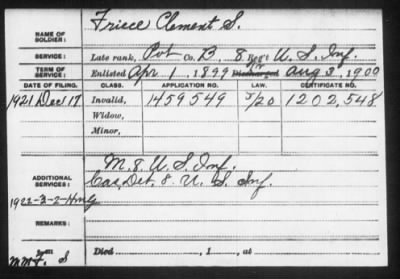 NAME OF SOLDIER: Friece Clement S.
SERVICE: Late rank, Pvt Co. B, 8 Reg't U. S. Inf.
TERM OF SERVICE: Enlisted Apr. 1, 1899 Discharged Aug 3, 1900
DATE OF FILING. CLASS. APPLICATION NO. LAW. CERTIFICATE NO.
1921 Dec 17 Invalid, 1459549 5/20 1202,548
Widow,
Minor,
ADDITIONAL SERVICES: M. 8. U. S. Inf.
Cas. Det. 8 U. S. Inf.
1922-3-2-
REMARKS:
Died , 1 , at